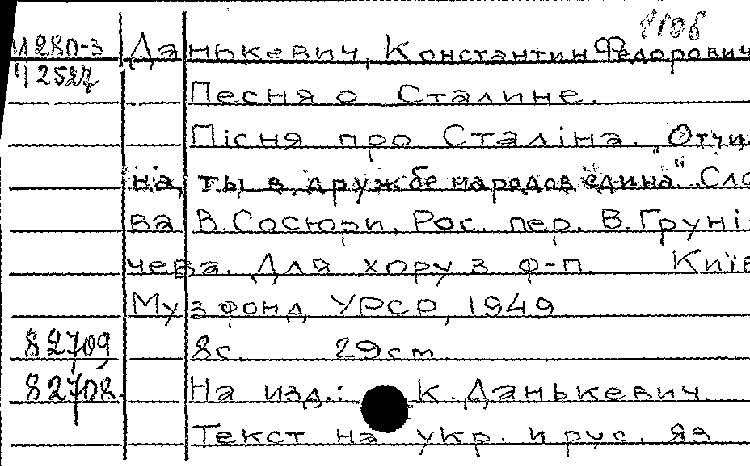 8106
Ц280-3 Данькевич, Константин Федорович
Ч252ц
Песня о Сталине.
Пісня про Сталіна. „Отчиз-
на, ты в дружбе народов едина". Сло-
ва В. Сосюри. Рос. пер. В. Груні-
чева. Для хору з ф-п. Київ
Музфонд УРСР, 1949
82709 8с. 29cm
82708. На изд.: К. Данькевич
Текст на укр. и рус. яз